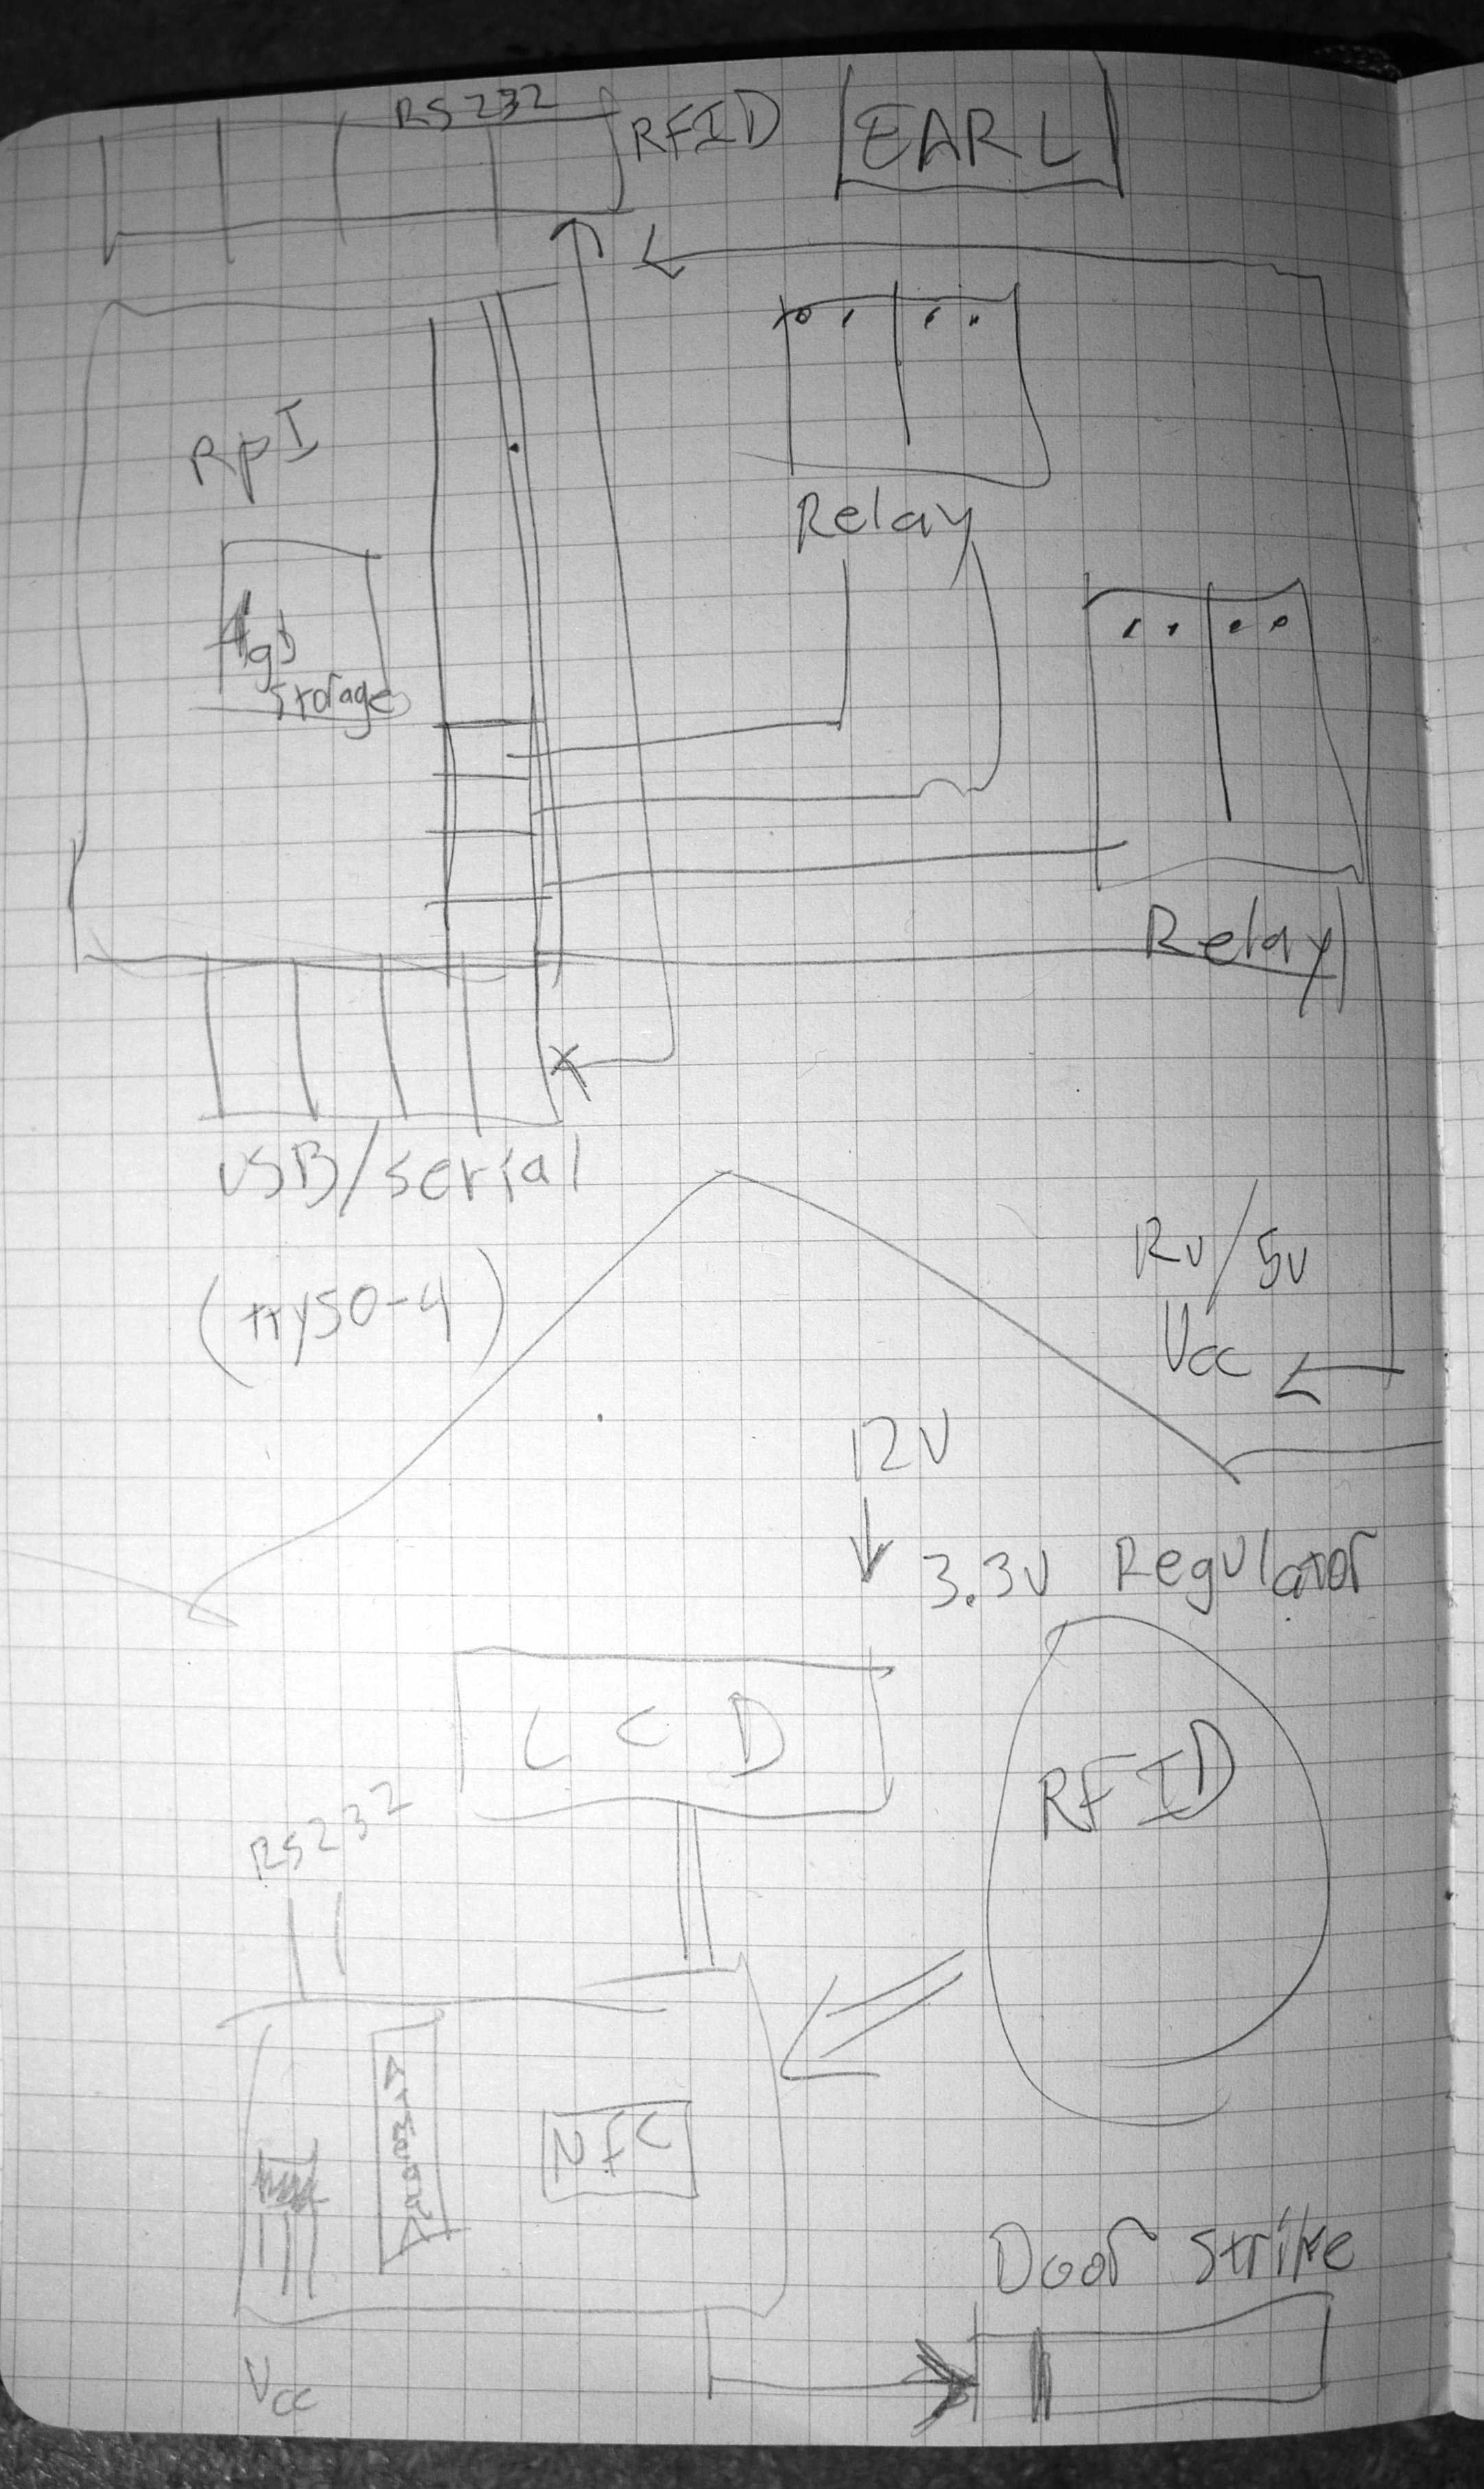 RS232
RFID
EARL
RpI
Relay
4gb
Storage
Relay
USB/serial
(ttyS0-4)
Rv/5v
Vcc
12V
3.3V Regulator
LCD
RFID
RS232
NFC
Door strike
Vcc